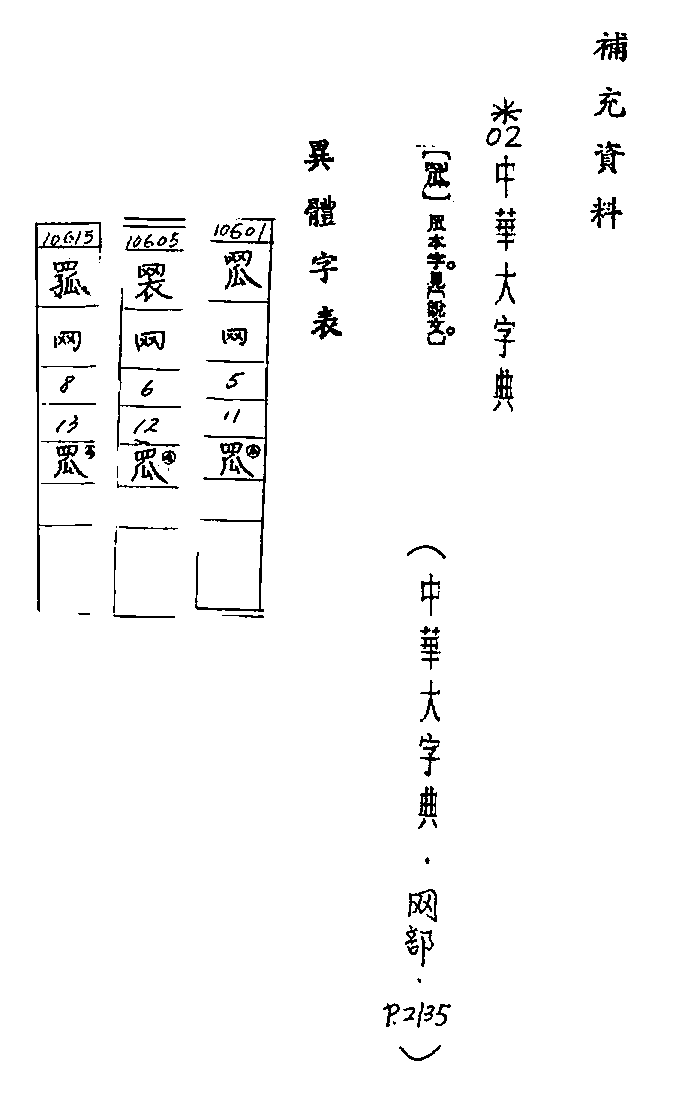 補充資料
※02中華大字典
本字。見〔說文。〕
(中華大字典．网部．P.2135)
異體字表
10601
罛
网
5
11
罛④
10605
网
6
12
罛④
10615
网
8
13
罛